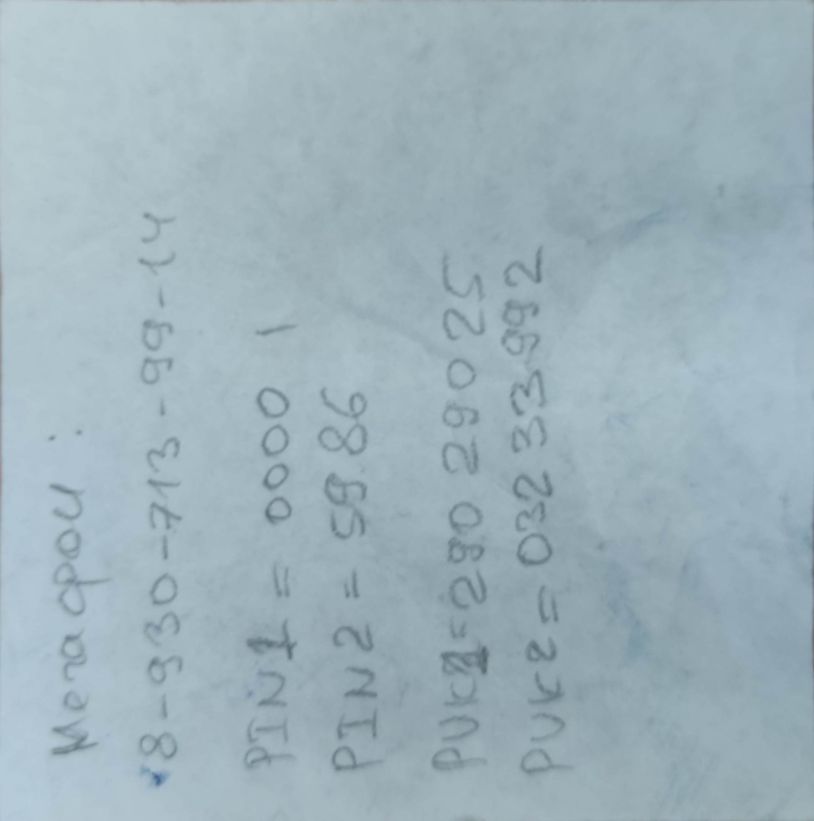 Мегафон:
8-930-713-99-14
PIN1 = 0000 1
PIN2 = 5986
PUK1=290 290 25
PUK2 = 032 33 992